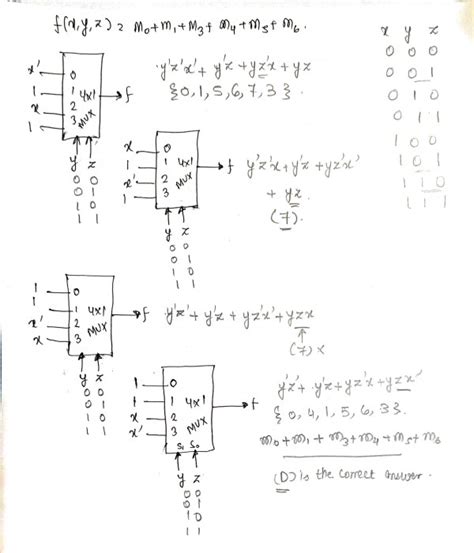 f(x,y,z) = m₀+m₁+m₃+m₄+m₅+m₆.
x y z
0 0 0
0 0 1
0 1 0
0 1 1
1 0 0
1 0 1
1 1 0
1 1 1
x' 0
1 1 4x1
x 2 MUX
1 3
f
y'z'x'+y'z+yz'x+yz
{0,1,5,6,7,3}.
y z
0 0
0 1
1 0
1 1
x 0
1 1 4x1
x' 2 MUX
1 3
f y'z'x+y'z+yz'x'
+ yz
(7).
y z
0 0
0 1
1 0
1 1
1 0
1 1 4x1
x' 2 MUX
x 3
f y'z'+y'z+yz'x'+yzx
(7) x
y z
0 0
0 1
1 0
1 1
1 0
1 1 4x1
x 2 MUX
x' 3
S₁ S₀
f
y'z'+y'z+yz'x+yzx'
{0,4,1,5,6,3}.
m₀+m₁+m₃+m₄+m₅+m₆
(D) is the correct answer.
y z
0 0
0 1
1 0
1 1